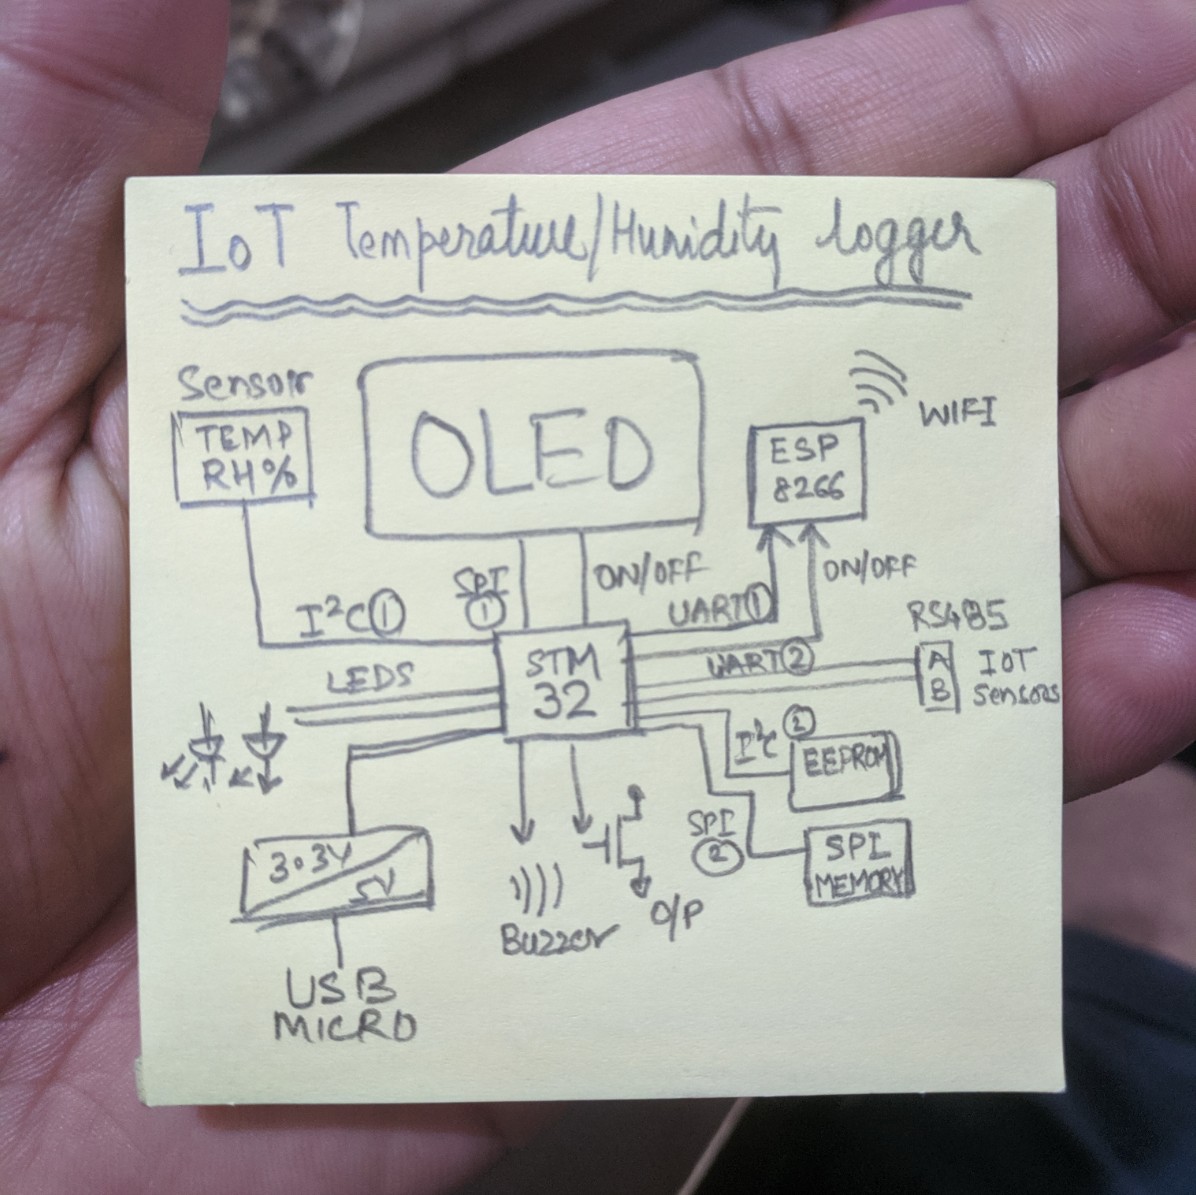 IoT Temperature/Humidity logger
Sensor
TEMP
RH%
OLED
WIFI
ESP
8266
I²C①
SPI
①
ON/OFF
UART①
ON/OFF
LEDS
STM
32
UART②
RS485
A
B
IoT
Sensors
I²C ②
EEPROM
SPI
②
SPI
MEMORY
3.3V
5V
Buzzer
O/P
USB
MICRO